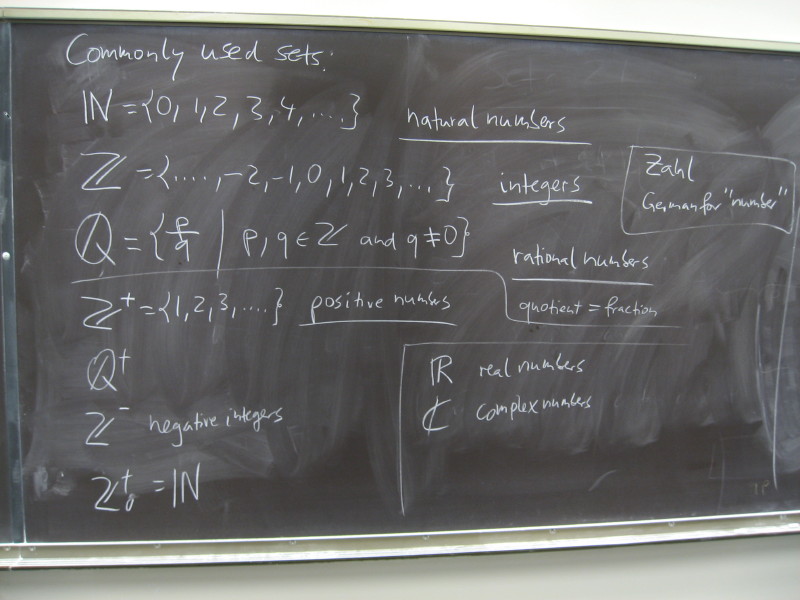 Commonly used sets:
ℕ = {0, 1, 2, 3, 4, ....} natural numbers
ℤ = {...., -2, -1, 0, 1, 2, 3, ...} integers
Zahl
German for "number"
ℚ = {p/q | p, q ∈ ℤ and q ≠ 0}
rational numbers
quotient = fraction
ℤ⁺ = {1, 2, 3, ....} positive numbers
ℚ⁺
ℤ⁻ negative integers
ℤ₀⁺ = ℕ
ℝ real numbers
ℂ complex numbers